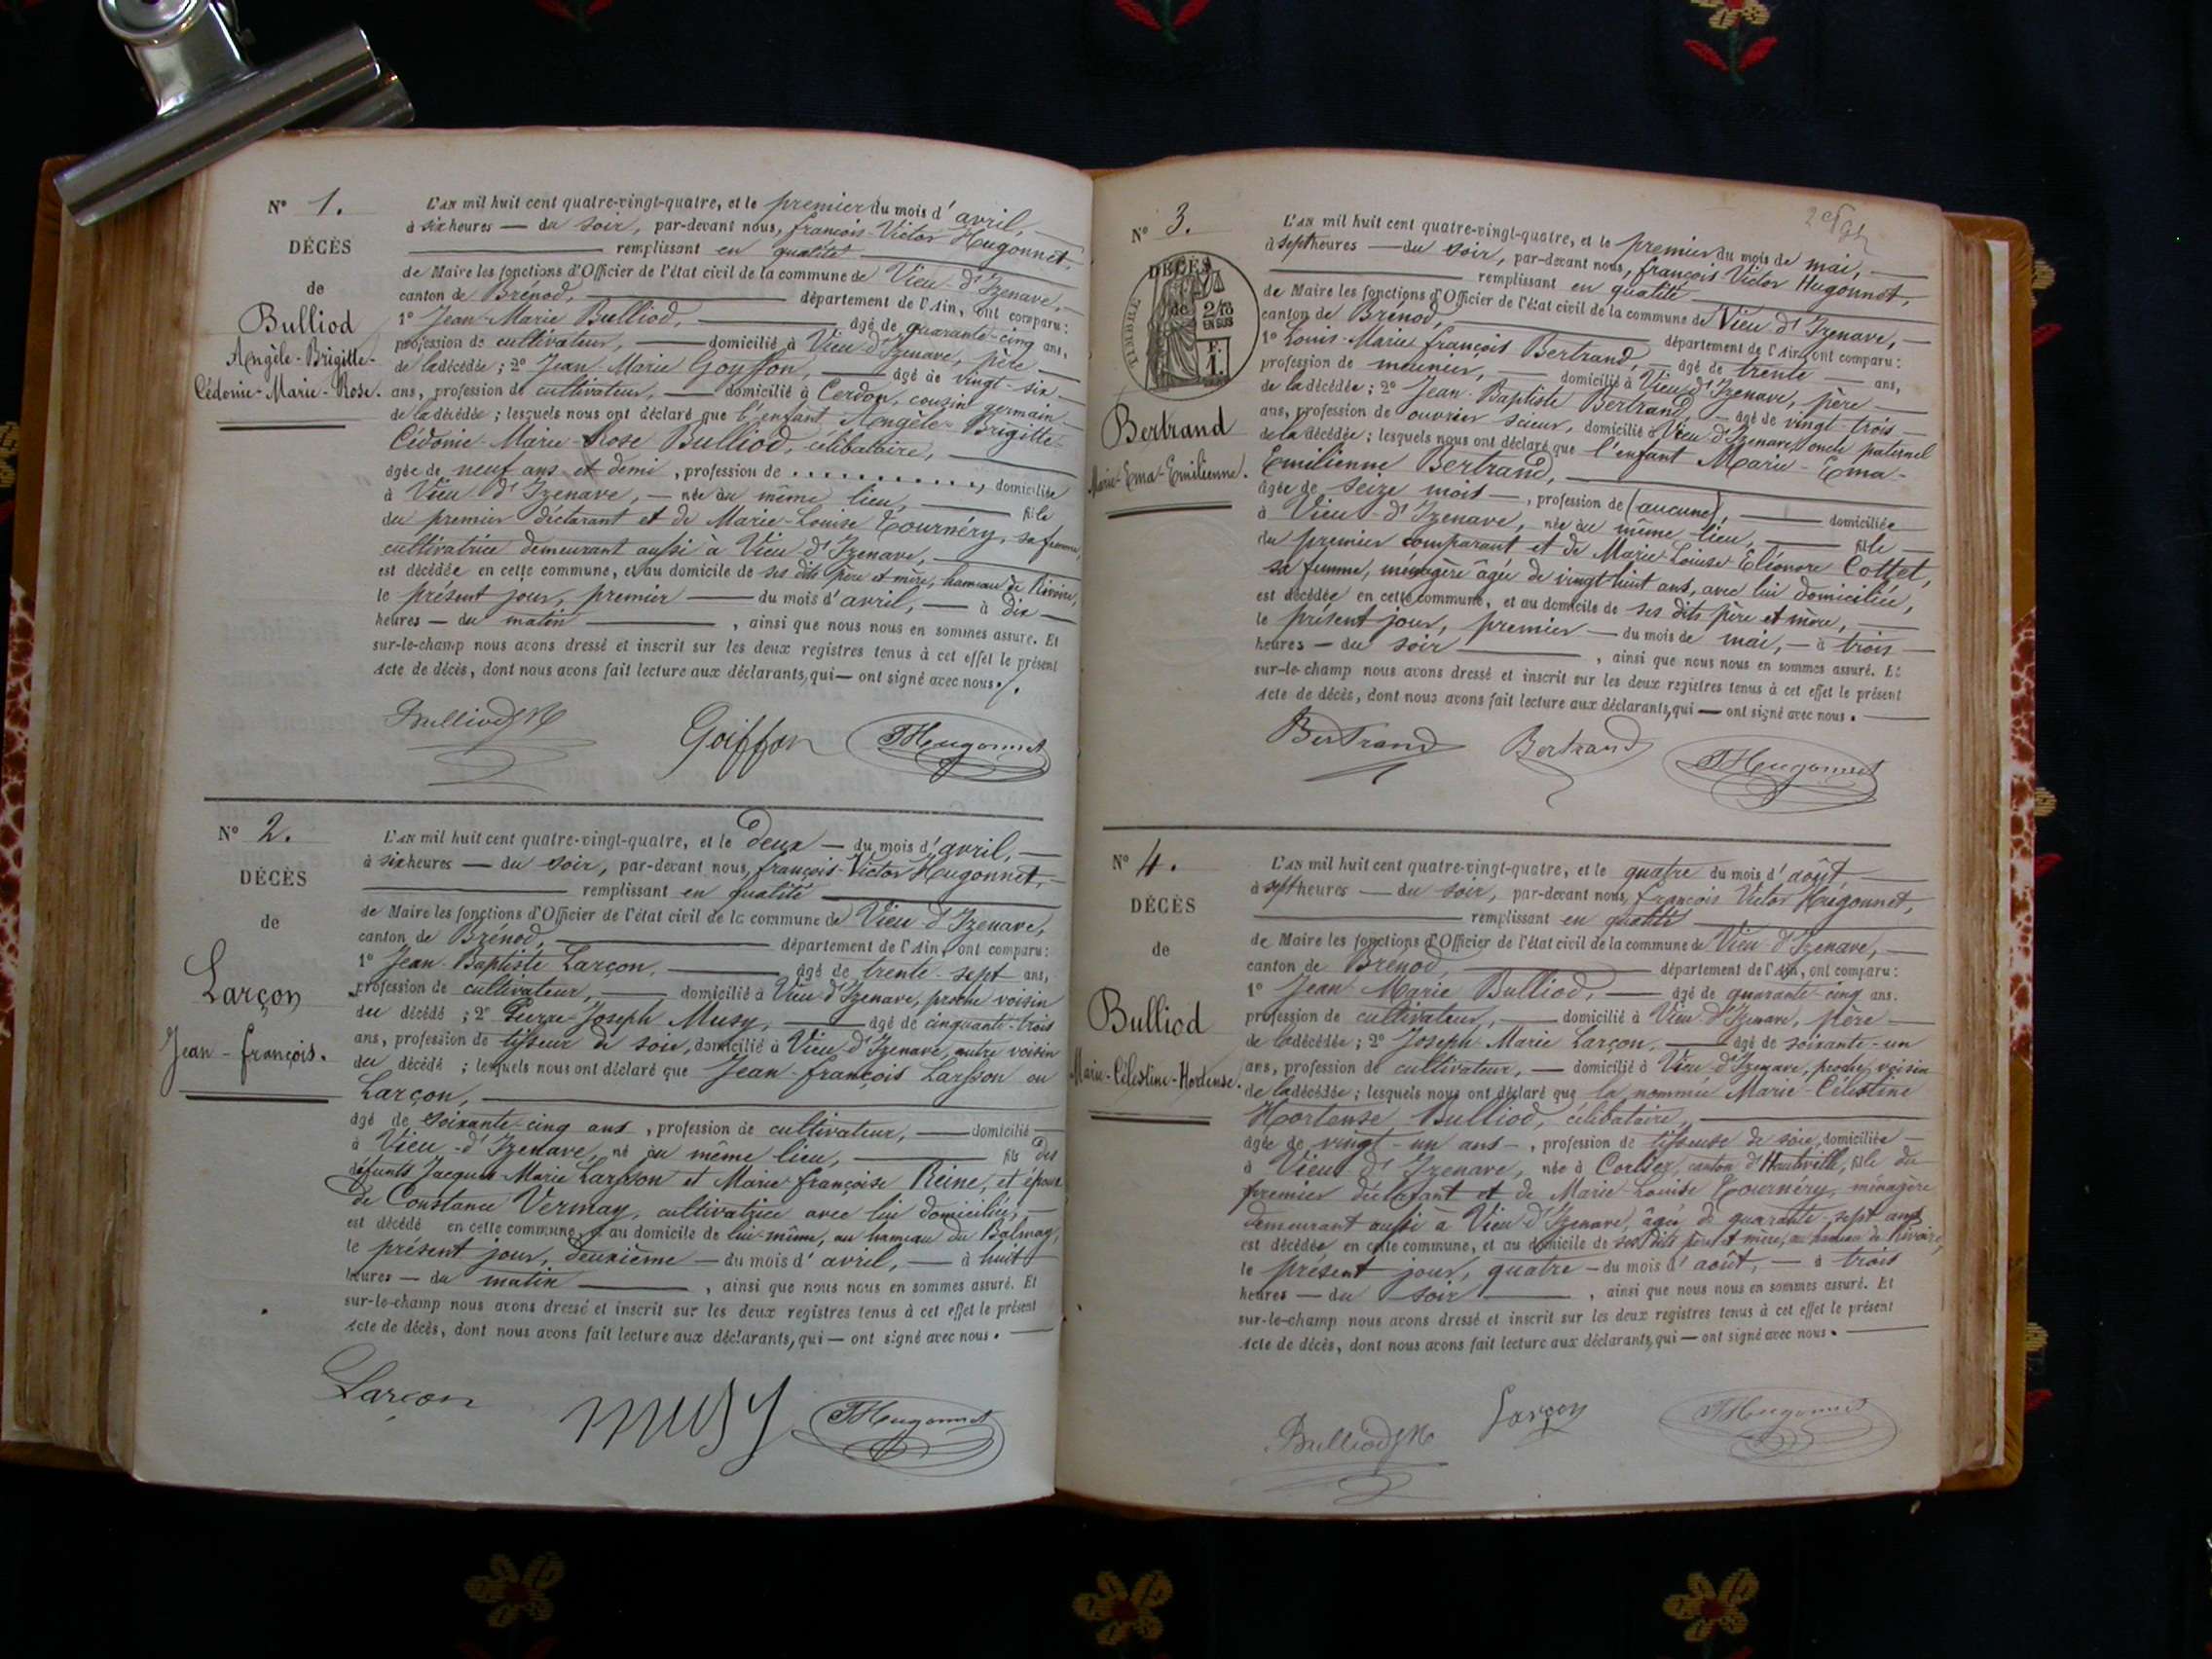 N° 1.
DÉCÈS
de
Bulliod
Angèle-Brigitte-
Cédonie-Marie-Rose.
L'AN mil huit cent quatre-vingt-quatre, et le premier du mois d'avril,
à six heures — du soir, par-devant nous, françois-Victor Hugonnet,
remplissant en qualité
de Maire les fonctions d'Officier de l'état civil de la commune de Vieu-d'Izenave,
canton de Brénod, département de l'Ain, ont comparu:
1° Jean-Marie Bulliod, âgé de quarante-cinq ans,
profession de cultivateur, domicilié à Vieu d'Izenave, père
de la décédée; 2° Jean-Marie Goyffon, âgé de vingt-six
ans, profession de cultivateur, domicilié à Cerdon, cousin germain
de la décédée; lesquels nous ont déclaré que l'enfant Angèle-Brigitte-
Cédonie-Marie-Rose Bulliod, célibataire,
âgée de neuf ans et demi, profession de ............, domiciliée
à Vieu d'Izenave, — née au même lieu, fille
du premier déclarant et de Marie-Louise Tournéry, sa femme,
cultivatrice demeurant aussi à Vieu d'Izenave,
est décédée en cette commune, et au domicile de ses dits père et mère, hameau de Rivoire,
le présent jour, premier — du mois d'avril, — à dix
heures — du matin, ainsi que nous nous en sommes assuré. Et
sur-le-champ nous avons dressé et inscrit sur les deux registres tenus à cet effet le présent
acte de décès, dont nous avons fait lecture aux déclarants, qui — ont signé avec nous./.
Bulliod JM Goiffon Hugonnet
N° 2.
DÉCÈS
de
Larçon
Jean-françois.
L'AN mil huit cent quatre-vingt-quatre, et le Deux — du mois d'avril,
à six heures — du soir, par-devant nous, françois-Victor Hugonnet,
remplissant en qualité
de Maire les fonctions d'Officier de l'état civil de la commune de Vieu-d'Izenave,
canton de Brénod, département de l'Ain, ont comparu:
1° Jean-Baptiste Larçon, âgé de trente-sept ans,
profession de cultivateur, domicilié à Vieu d'Izenave, proche voisin
du décédé; 2° Pierre-Joseph Musy, âgé de cinquante-trois
ans, profession de tisseur de soie, domicilié à Vieu d'Izenave, autre voisin
du décédé; lesquels nous ont déclaré que Jean-françois Larsson ou
Larçon,
âgé de soixante-cinq ans, profession de cultivateur, domicilié
à Vieu-d'Izenave, né au même lieu, fils des
défunts Jacques-Marie Larsson et Marie-françoise Reine, et époux
de Constance Vermay, cultivatrice avec lui domiciliée,
est décédé en cette commune, et au domicile de lui-même, au hameau du Balmay,
le présent jour, deuxième — du mois d'avril, — à huit
heures — du matin, ainsi que nous nous en sommes assuré. Et
sur-le-champ nous avons dressé et inscrit sur les deux registres tenus à cet effet le présent
acte de décès, dont nous avons fait lecture aux déclarants, qui — ont signé avec nous.
Larçon musy Hugonnet
N° 3.
DÉCÈS
de
TIMBRE
2/10
EN SUS
1 F.
Bertrand
Marie-Ema-Emilienne.
L'AN mil huit cent quatre-vingt-quatre, et le premier du mois de mai,
à sept heures — du soir, par-devant nous, françois Victor Hugonnet,
remplissant en qualité
de Maire les fonctions d'Officier de l'état civil de la commune de Vieu d'Izenave,
canton de Brénod, département de l'Ain, ont comparu:
1° Louis-Marie françois Bertrand, âgé de trente ans,
profession de meunier, domicilié à Vieu d'Izenave, père
de la décédée; 2° Jean-Baptiste Bertrand, âgé de vingt-trois
ans, profession de ouvrier scieur, domicilié à Vieu d'Izenave, oncle paternel
de la décédée; lesquels nous ont déclaré que l'enfant Marie-Ema-
Emilienne Bertrand,
âgée de seize mois, profession de (aucune), domiciliée
à Vieu-d'Izenave, née au même lieu, fille
du premier comparant et de Marie-Louise Eléonore Cottet,
sa femme, ménagère âgée de vingt-huit ans, avec lui domiciliée,
est décédée en cette commune, et au domicile de ses dits père et mère,
le présent jour, premier — du mois de mai, — à trois
heures — du soir, ainsi que nous nous en sommes assuré. Et
sur-le-champ nous avons dressé et inscrit sur les deux registres tenus à cet effet le présent
acte de décès, dont nous avons fait lecture aux déclarants, qui — ont signé avec nous.
Bertrand Bertrand Hugonnet
N° 4.
DÉCÈS
de
Bulliod
Marie-Célestine-Hortense.
L'AN mil huit cent quatre-vingt-quatre, et le quatre du mois d'août,
à sept heures — du soir, par-devant nous, françois Victor Hugonnet,
remplissant en qualité
de Maire les fonctions d'Officier de l'état civil de la commune de Vieu-d'Izenave,
canton de Brénod, département de l'Ain, ont comparu:
1° Jean-Marie Bulliod, âgé de quarante-cinq ans.
profession de cultivateur, domicilié à Vieu-d'Izenave, père
de la décédée; 2° Joseph-Marie Larçon, âgé de soixante-un
ans, profession de cultivateur, domicilié à Vieu-d'Izenave, proche voisin
de la décédée; lesquels nous ont déclaré que la nommée Marie-Célestine
Hortense Bulliod, célibataire,
âgée de vingt-un ans, profession de tisseuse de soie, domiciliée
à Vieu d'Izenave, née à Corlier, canton d'Hauteville, fille du
premier déclarant et de Marie-Louise Tournéry, ménagère
demeurant aussi à Vieu-d'Izenave, âgée de quarante-sept ans
est décédée en cette commune, et au domicile de ses dits père et mère, au hameau de Rivoire,
le présent jour, quatre — du mois d'août, — à trois
heures — du soir, ainsi que nous nous en sommes assuré. Et
sur-le-champ nous avons dressé et inscrit sur les deux registres tenus à cet effet le présent
acte de décès, dont nous avons fait lecture aux déclarants, qui — ont signé avec nous.
Bulliod JM Larçon Hugonnet